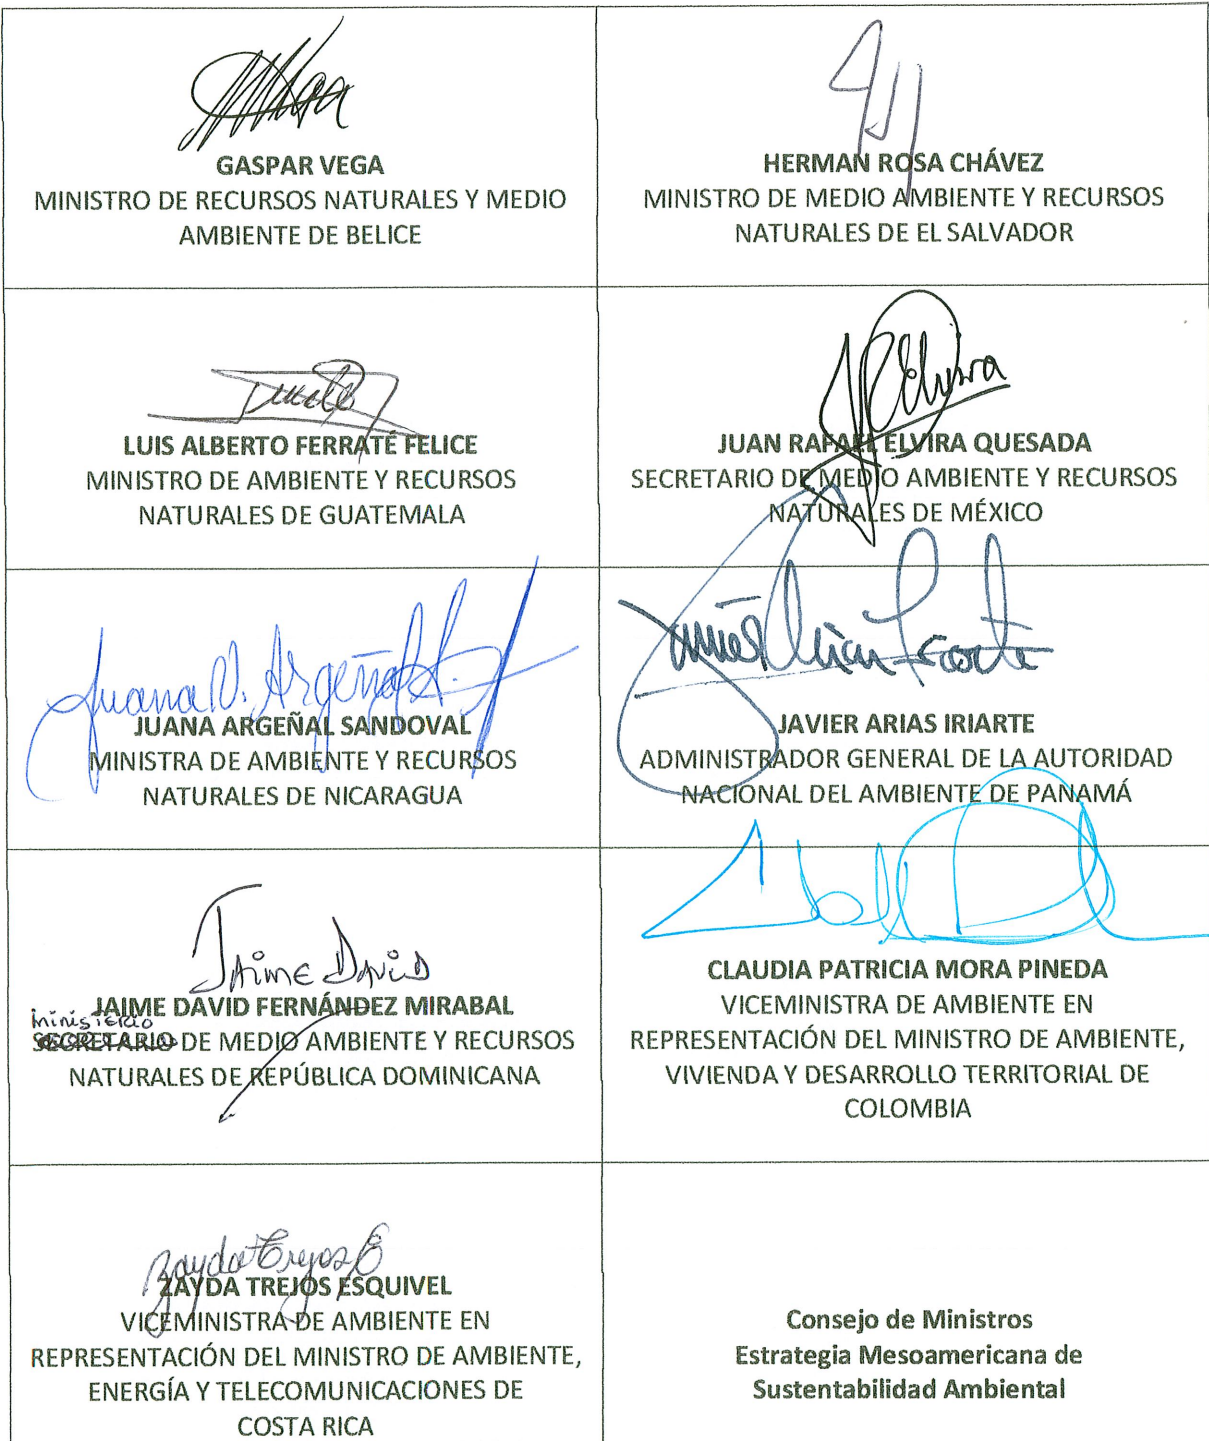 GASPAR VEGA
MINISTRO DE RECURSOS NATURALES Y MEDIO
AMBIENTE DE BELICE
HERMAN ROSA CHÁVEZ
MINISTRO DE MEDIO AMBIENTE Y RECURSOS
NATURALES DE EL SALVADOR
LUIS ALBERTO FERRATÉ FELICE
MINISTRO DE AMBIENTE Y RECURSOS
NATURALES DE GUATEMALA
JUAN RAFAEL ELVIRA QUESADA
SECRETARIO DE MEDIO AMBIENTE Y RECURSOS
NATURALES DE MÉXICO
Juana V. Argeñal S.
JUANA ARGEÑAL SANDOVAL
MINISTRA DE AMBIENTE Y RECURSOS
NATURALES DE NICARAGUA
JAVIER ARIAS IRIARTE
ADMINISTRADOR GENERAL DE LA AUTORIDAD
NACIONAL DEL AMBIENTE DE PANAMÁ
JAIME DAVID
JAIME DAVID FERNÁNDEZ MIRABAL
ministerio
SECRETARIO DE MEDIO AMBIENTE Y RECURSOS
NATURALES DE REPÚBLICA DOMINICANA
CLAUDIA PATRICIA MORA PINEDA
VICEMINISTRA DE AMBIENTE EN
REPRESENTACIÓN DEL MINISTRO DE AMBIENTE,
VIVIENDA Y DESARROLLO TERRITORIAL DE
COLOMBIA
Zayda Trejos E
ZAYDA TREJOS ESQUIVEL
VICEMINISTRA DE AMBIENTE EN
REPRESENTACIÓN DEL MINISTRO DE AMBIENTE,
ENERGÍA Y TELECOMUNICACIONES DE
COSTA RICA
Consejo de Ministros
Estrategia Mesoamericana de
Sustentabilidad Ambiental